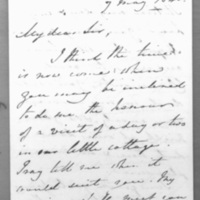 My dear Sir,
I think the time
is now come when
you may be inclined
to do me the honour
of a visit of a day or two
in our little cottage.
Pray tell me when it
would suit you. My